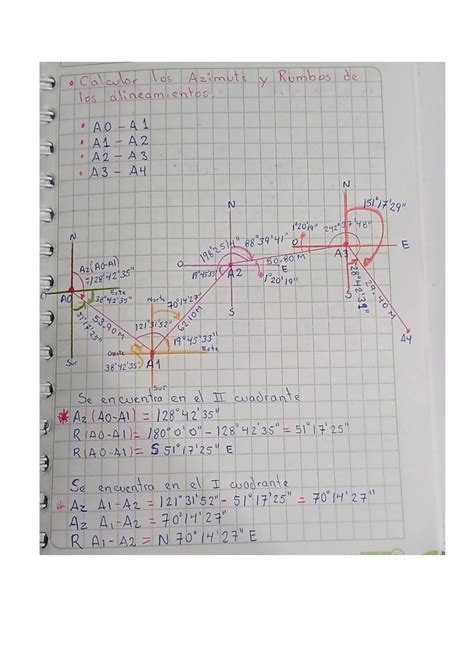 • Calcular los Azimuts y Rumbos de
los alineamientos.
• A0 - A1
• A1 - A2
• A2 - A3
• A3 - A4
N
N
N
151°17'29"
1°20'19"
242°37'48"
198°25'14"
88°39'41"
O
E
A3
N
Az(A0-A1)
=128°42'35"
O
19°45'33"
A2
50.80 M
E
1°20'19"
28°42'31"
29.40 M
S
A0
Este
38°42'35"
Norte
70°14'27"
S
51°17'25"
53.90 M
121°31'52"
62.10 M
A4
19°45'33"
Oeste
Este
Sur
38°42'35"
A1
Sur
Se encuentra en el II cuadrante
* Az (A0-A1) = 128°42'35"
R (A0-A1) = 180°0'0" - 128°42'35" = 51°17'25"
R (A0-A1) = S 51°17'25" E
Se encuentra en el I cuadrante
* Az A1-A2 = 121°31'52" - 51°17'25" = 70°14'27"
Az A1-A2 = 70°14'27"
R A1-A2 = N 70°14'27" E